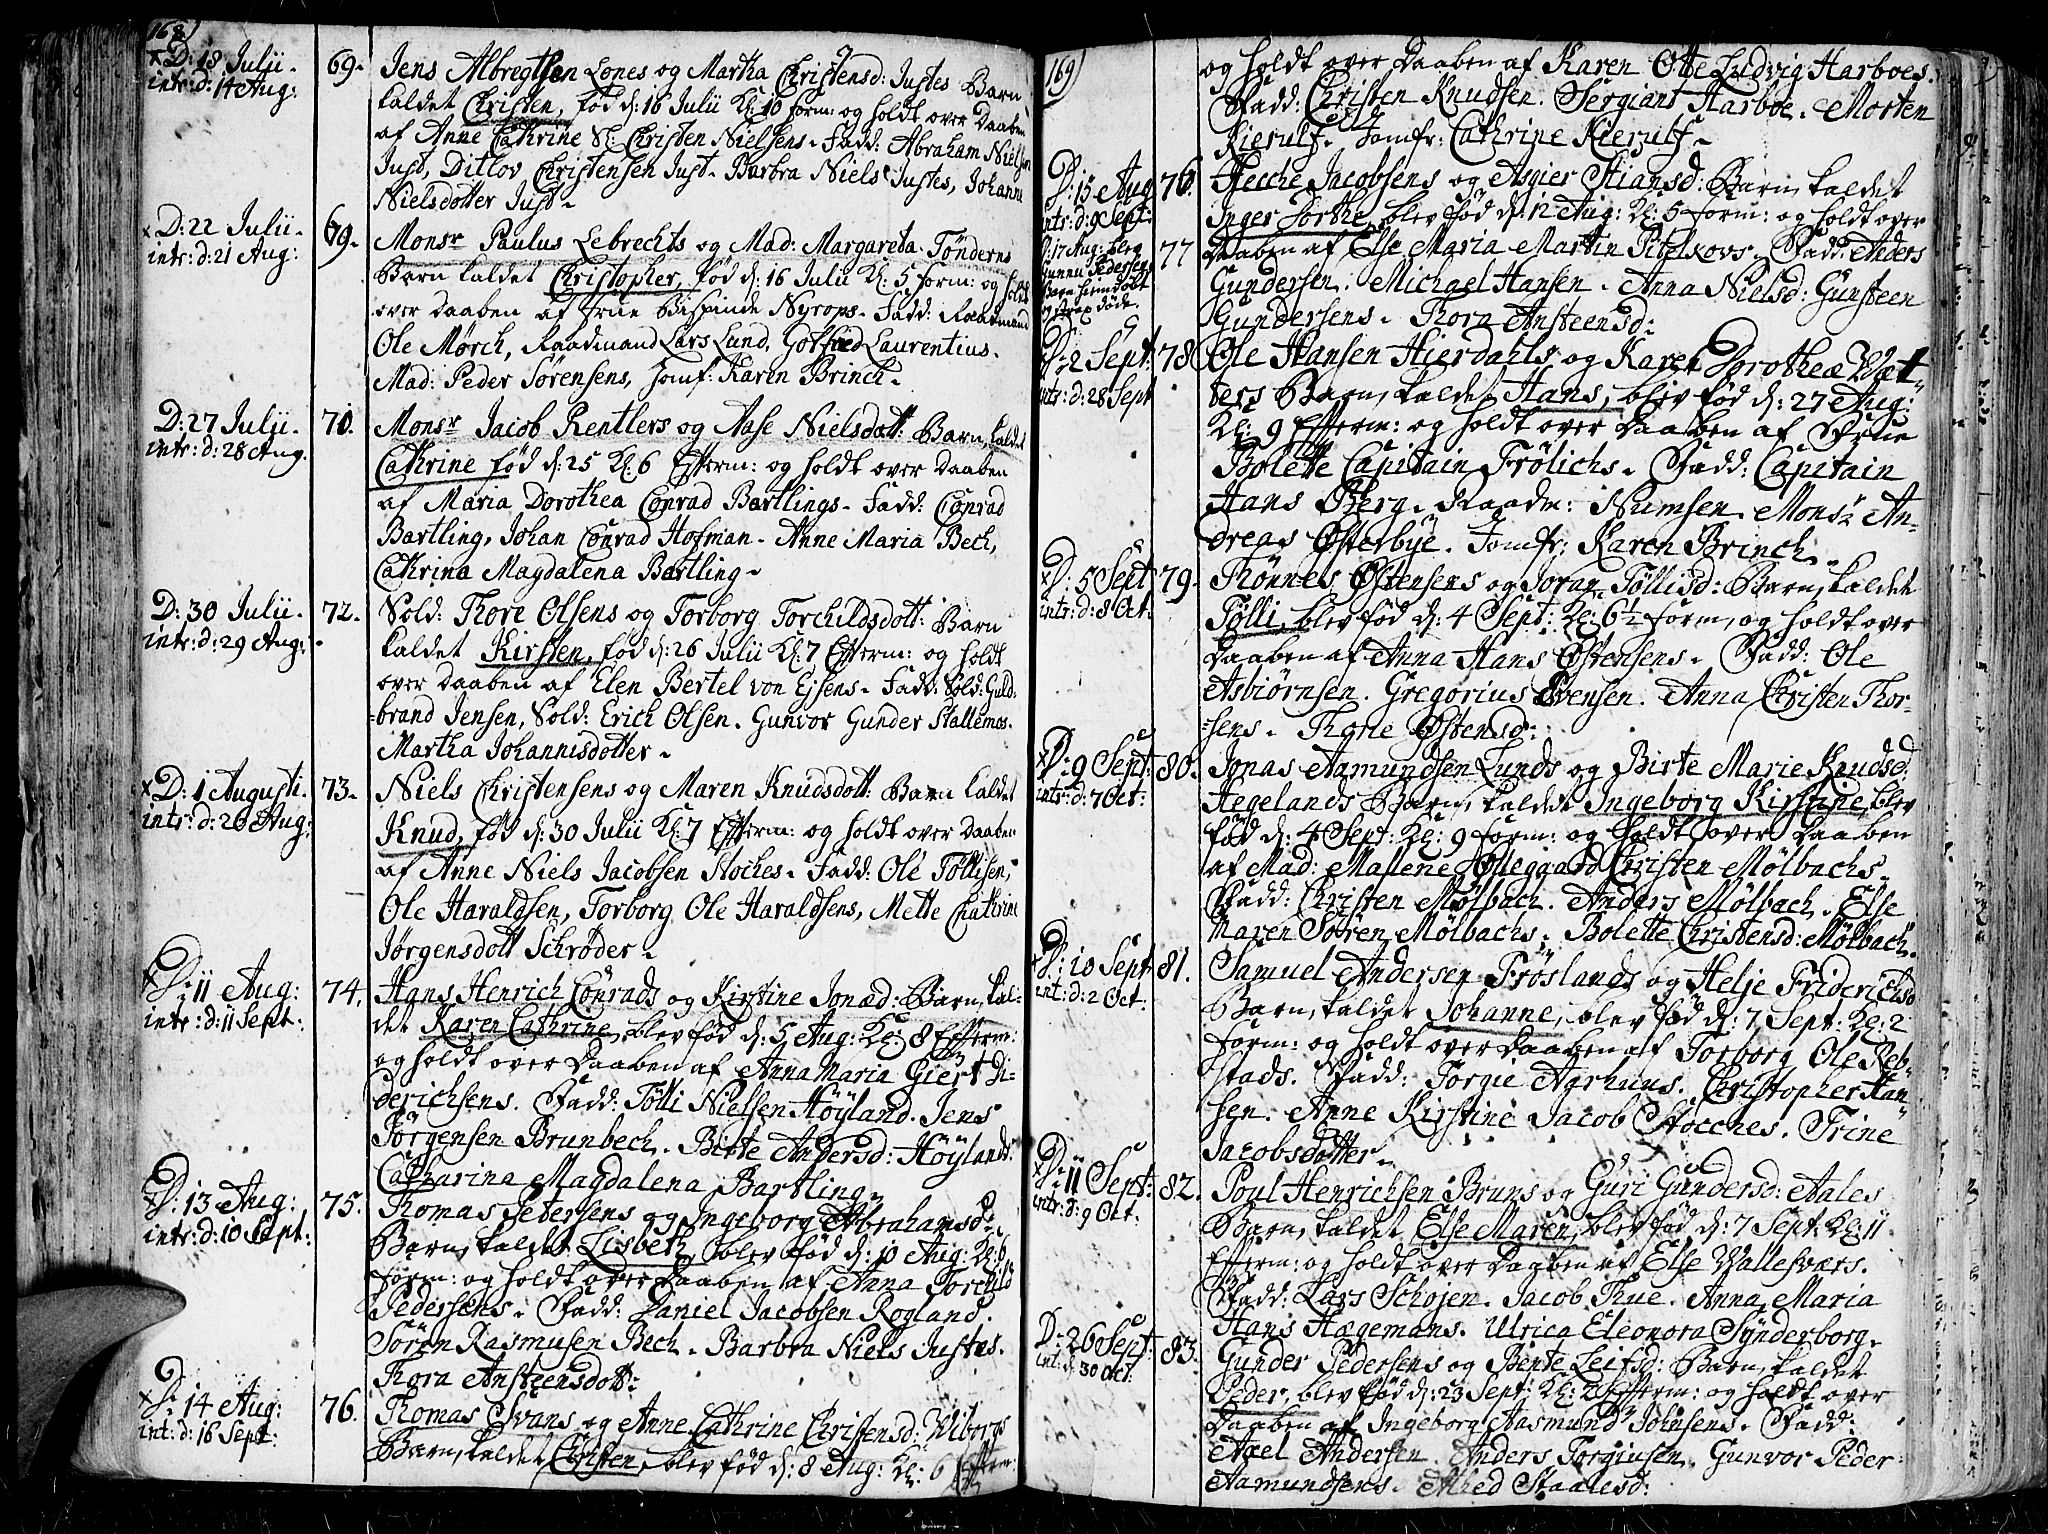 168)
D: 18 Julii. 69.
intr: d: 14 Aug:
Jens Albregtsen Lones og Martha Christensd: Justes Barn
kaldet Christen, fød d: 16 Julii Kl: 10 form: og holdt over Daaben
af Anne Cathrine Sl: Christen Nielsens. Fadd: Abraham Nielsen
Just, Ditlov Christensen Just. Barbra Niels Justes, Johanne
Nielsdotter Just.
D: 22 Julii. 69.
intr: d: 21 Aug:
Monsr Paulus Lebrechts og Mad: Margareta Tønders
Barn kaldet Christopher, fød d: 16 Julii Kl: 5 form: og holdt
over Daaben af Frue Bispinde Nyrops. Fadd: Raadmand
Ole Mørch, Raadmand Lars Lund, Gotfred Laurentius.
Mad: Peder Sørensens, Jomf: Karen Brinch.
D: 27 Julii. 70.
intr: d: 28 Aug.
Monsr Jacob Rentlers og Aase Nielsdott: Barn, kaldet
Cathrine fød d: 25 Kl: 6 Efterm: og holdt over Daaben
af Maria Dorothea Conrad Bartlings. Fadd: Conrad
Bartling, Johan Conrad Hofman. Anne Maria Bech,
Cathrina Magdalena Bartling.
D: 30 Julii. 72.
intr: d: 29 Aug:
Sold: Thore Olsens og Torborg Torchildsdott: Barn
kaldet Kirsten, fød d: 26 Julii Kl: 7 Efterm: og holdt
over Daaben af Elen Bertel von Ejsens. Fadd: Sold: Guld-
=brand Jensen, Sold: Erich Olsen. Gunvor Gunder Stallemos.
Martha Johannisdotter.
D: 1 Augusti. 73.
intr: d: 26 Aug:
Niels Christensens og Maren Knudsdott: Barn kaldet
Knud, fød d: 30 Julii Kl: 7 Efterm: og holdt over Daaben
af Anne Niels Jacobsen Stoches. Fadd: Ole Tøllisen,
Ole Haraldsen, Torborg Ole Haraldsens, Mette Chathrine
Jørgensdott Schrøder.
D: 11 Aug: 74.
intr: d: 11 Sept:
Hans Henrich Conrads og Kirstine Jonæd: Barn, kal-
det Karen Cathrine, blev fød d: 5 Aug: Kl: 8 Efterm:
og holdt over Daaben af Anna Maria Giert Di-
derichsens. Fadd: Tølli Nielsen Høyland. Jens
Jørgensen Brunbech. Birte Andersd: Høylands.
Catharina Magdalena Bartling.
D: 13 Aug: 75.
intr: d: 10 Sept:
Thomas Pedersens og Ingeborg Abrahamsd:
Barn, kaldet Lisbeth, blev fød d: 10 Aug: Kl: 6
form: og holdt over Daaben af Anna Torchild
Pedersens. Fadd: Daniel Jacobsen Rogland.
Søren Rasmusen Bech. Barbra Niels Justes.
Thora Ansteensdott:
D: 14 Aug: 76.
int: d: 16 Sept:
Thomas Evans og Anne Cathrine Christensd: Wiborgs
Barn, kaldet Christen, blev fød d: 8 Aug: Kl: 6 Efterm:
169)
og holdt over Daaben af Karen Otte Ludvig Harboes.
Fadd: Christen Knudsen. Sergiant Harboe. Morten
Kierulf. Jomfr: Cathrine Kierulf.
D: 15 Aug 76.
intr: d: 9 Sept:
Hecche Jacobsens og Asgier Stiansd: Barn, kaldet
Inger Dorthe, blev fød d: 12 Aug: Kl: 5 form: og holdt over
D: 17 Aug: blev 77
Gunnu Pedersens
Barn hiemdøbt
og strax døde.
Daaben af Else Maria Martin Pibelkovs. Fadd: Anders
Gundersen. Michael Hansen. Anna Nielsd: Gunsteen
Gundersens. Thora Ansteensd:
D: 2 Sept: 78
intr: d: 28 Sept
Ole Hansen Hierdahls og Karen Dorothea Wæt-
ters Barn, kaldet Hans, blev fød d: 27 Aug:
Kl: 9 Efterm: og holdt over Daaben af Frue
Bolette Capitain Frølichs. Fadd: Capitain
Hans Berg. Raadm: Numsen. Monsr An-
dreas Østerbye. Jomfr: Karen Brinch.
D: 5 Sept 79.
intr: d: 8 Oct:
Thønnes Østensens og Joran Tøllisd: Barn, kaldet
Tølli, blev fød d: 4 Sept: Kl: 6½ form, og holdt over
Daaben af Anna Hans Østensens. Fadd: Ole
Asbiørnsen. Gregorius Evensen. Anna Christen Thor-
=sens. Thore Østensd:
D: 9 Sept: 80.
intr: d: 7 Oct:
Jonas Aamundsen Lunds og Birte Marie Knudsd:
Hegelands Barn, kaldet Ingeborg Kirstine, blev
fød d: 4 Sept: Kl: 9 form: og holdt over Daaben
af Mad: Mallene Olleggaard Christen Mølbachs.
Fadd: Christen Mølbach. Anders Mølbach. Else
Maren Søren Mølbachs. Bolette Christensd: Mølbach.
D: 10 Sept 81.
int: d: 2 Oct:
Samuel Andersen Frøslands og Helje Friderichsd
Barn, kaldet Johanne, blev fød d: 7 Sept: Kl: 2
form: og holdt over Daaben af Torborg Ole Reb-
stads. Fadd: Torgie Aarhuns. Christopher Han-
sen. Anne Kirstine Jacob Stocches. Trine
Jacobsdotter.
D: 11 Sept: 82.
intr: d: 9 Oct:
Poul Henrichsen Bruns og Guri Gundersd: Aales
Barn, kaldet Else Maren, blev fød d: 7 Sept: Kl: 11
Efterm: og holdt over Daaben af Else Wallesværs.
Fadd: Lars Schojen. Jacob Thue. Anna Maria
Hans Hagemans. Ulrica Eleonora Synderborg.
D: 26 Sept: 83.
int: d: 30 Oct:
Gunder Pedersens og Bente Leifsd: Barn, kaldet
Peder, blev fød d: 23 Sept: Kl: 2 Efterm: og holdt over
Daaben af Ingeborg Aasmund Johnsens. Fadd:
Axel Andersen. Anders Torgiusen. Gunvor Peder
Aamundsens. Alhed Staalesd: